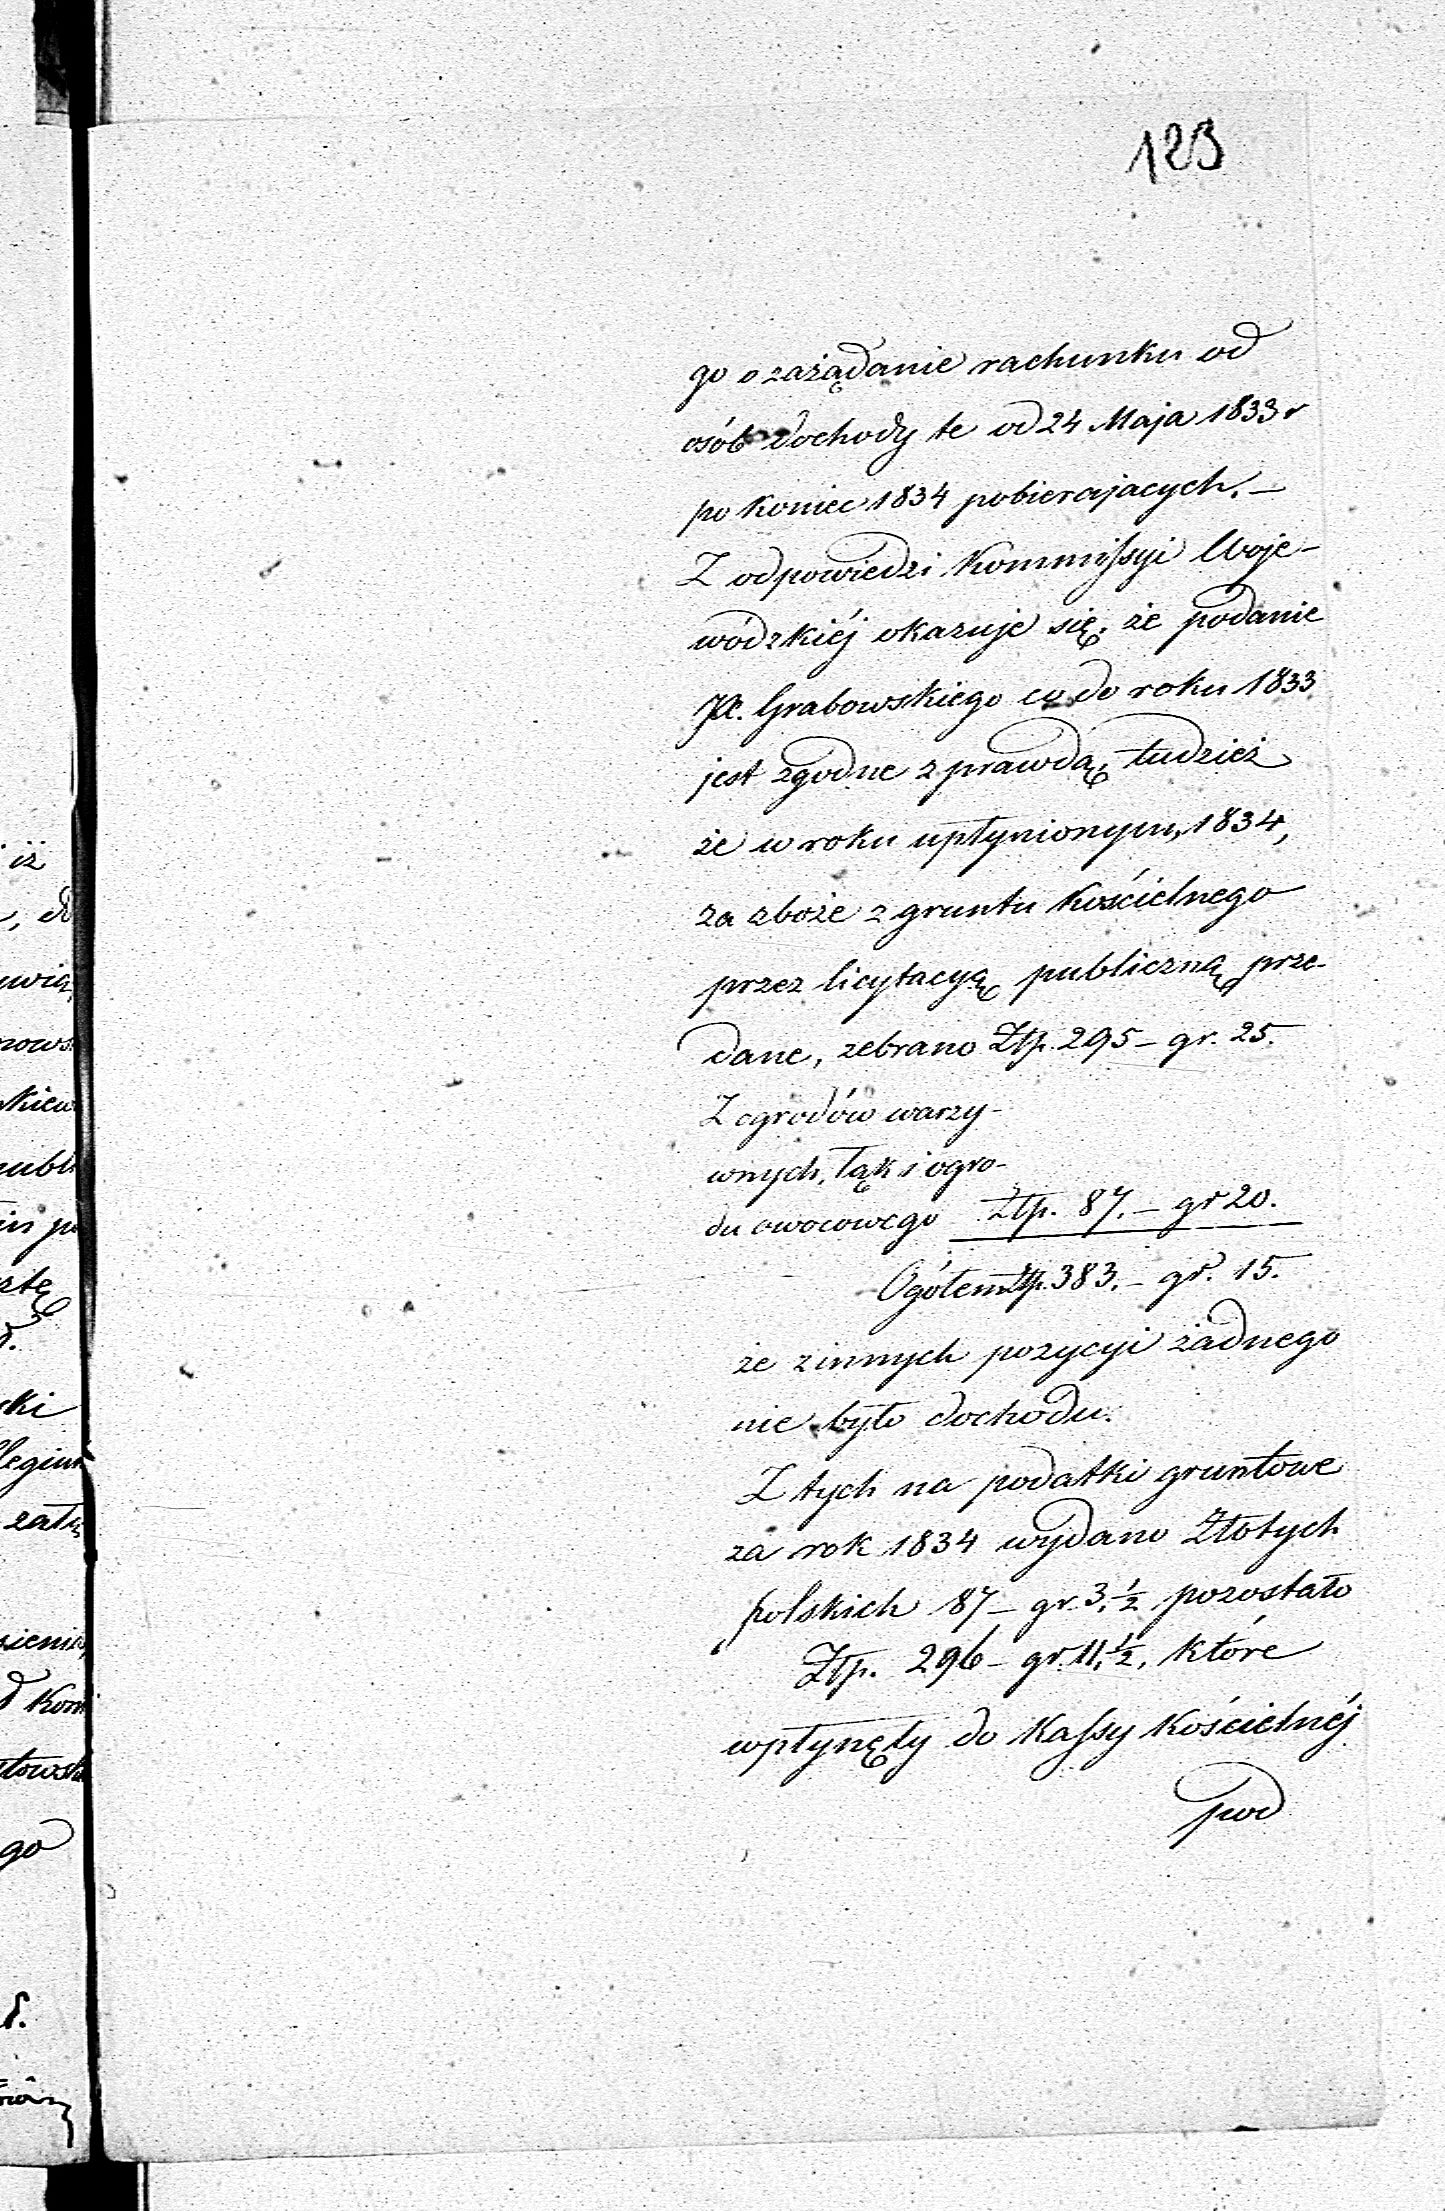 123
go o zażądanie rachunku od
osób dochody te od 24 Maja 1833 r
po koniec 1834 pobierajacych. —
Z odpowiedzi Kommissyi Woje-
wódzkiéj okazuje się, że podanie
Grabowskiego co do roku 1833
jest zgodne z prawdą, tudzież
że w roku upłynionym, 1834,
za zboże z gruntu Kościelnego
przez licytacyą publiczną prze-
dane, zebrano Złp. 295 – gr. 25.
Z ogrodów warzy-
wnych, łąk i ogro-
du owocowego Złp. 87. – gr 20.
Ogółem Złp. 383. – gr. 15.
że z innych pozycyi żadnego
nie było dochodu.
Z tych na podatki gruntowe
za rok 1834 wydano Złotych
polskich 87 – gr. 3. ½ pozostało
Złp. 296 – gr. 11. ½, które
wpłynęły do Kassy Kościelnéj
pod
iż
publi